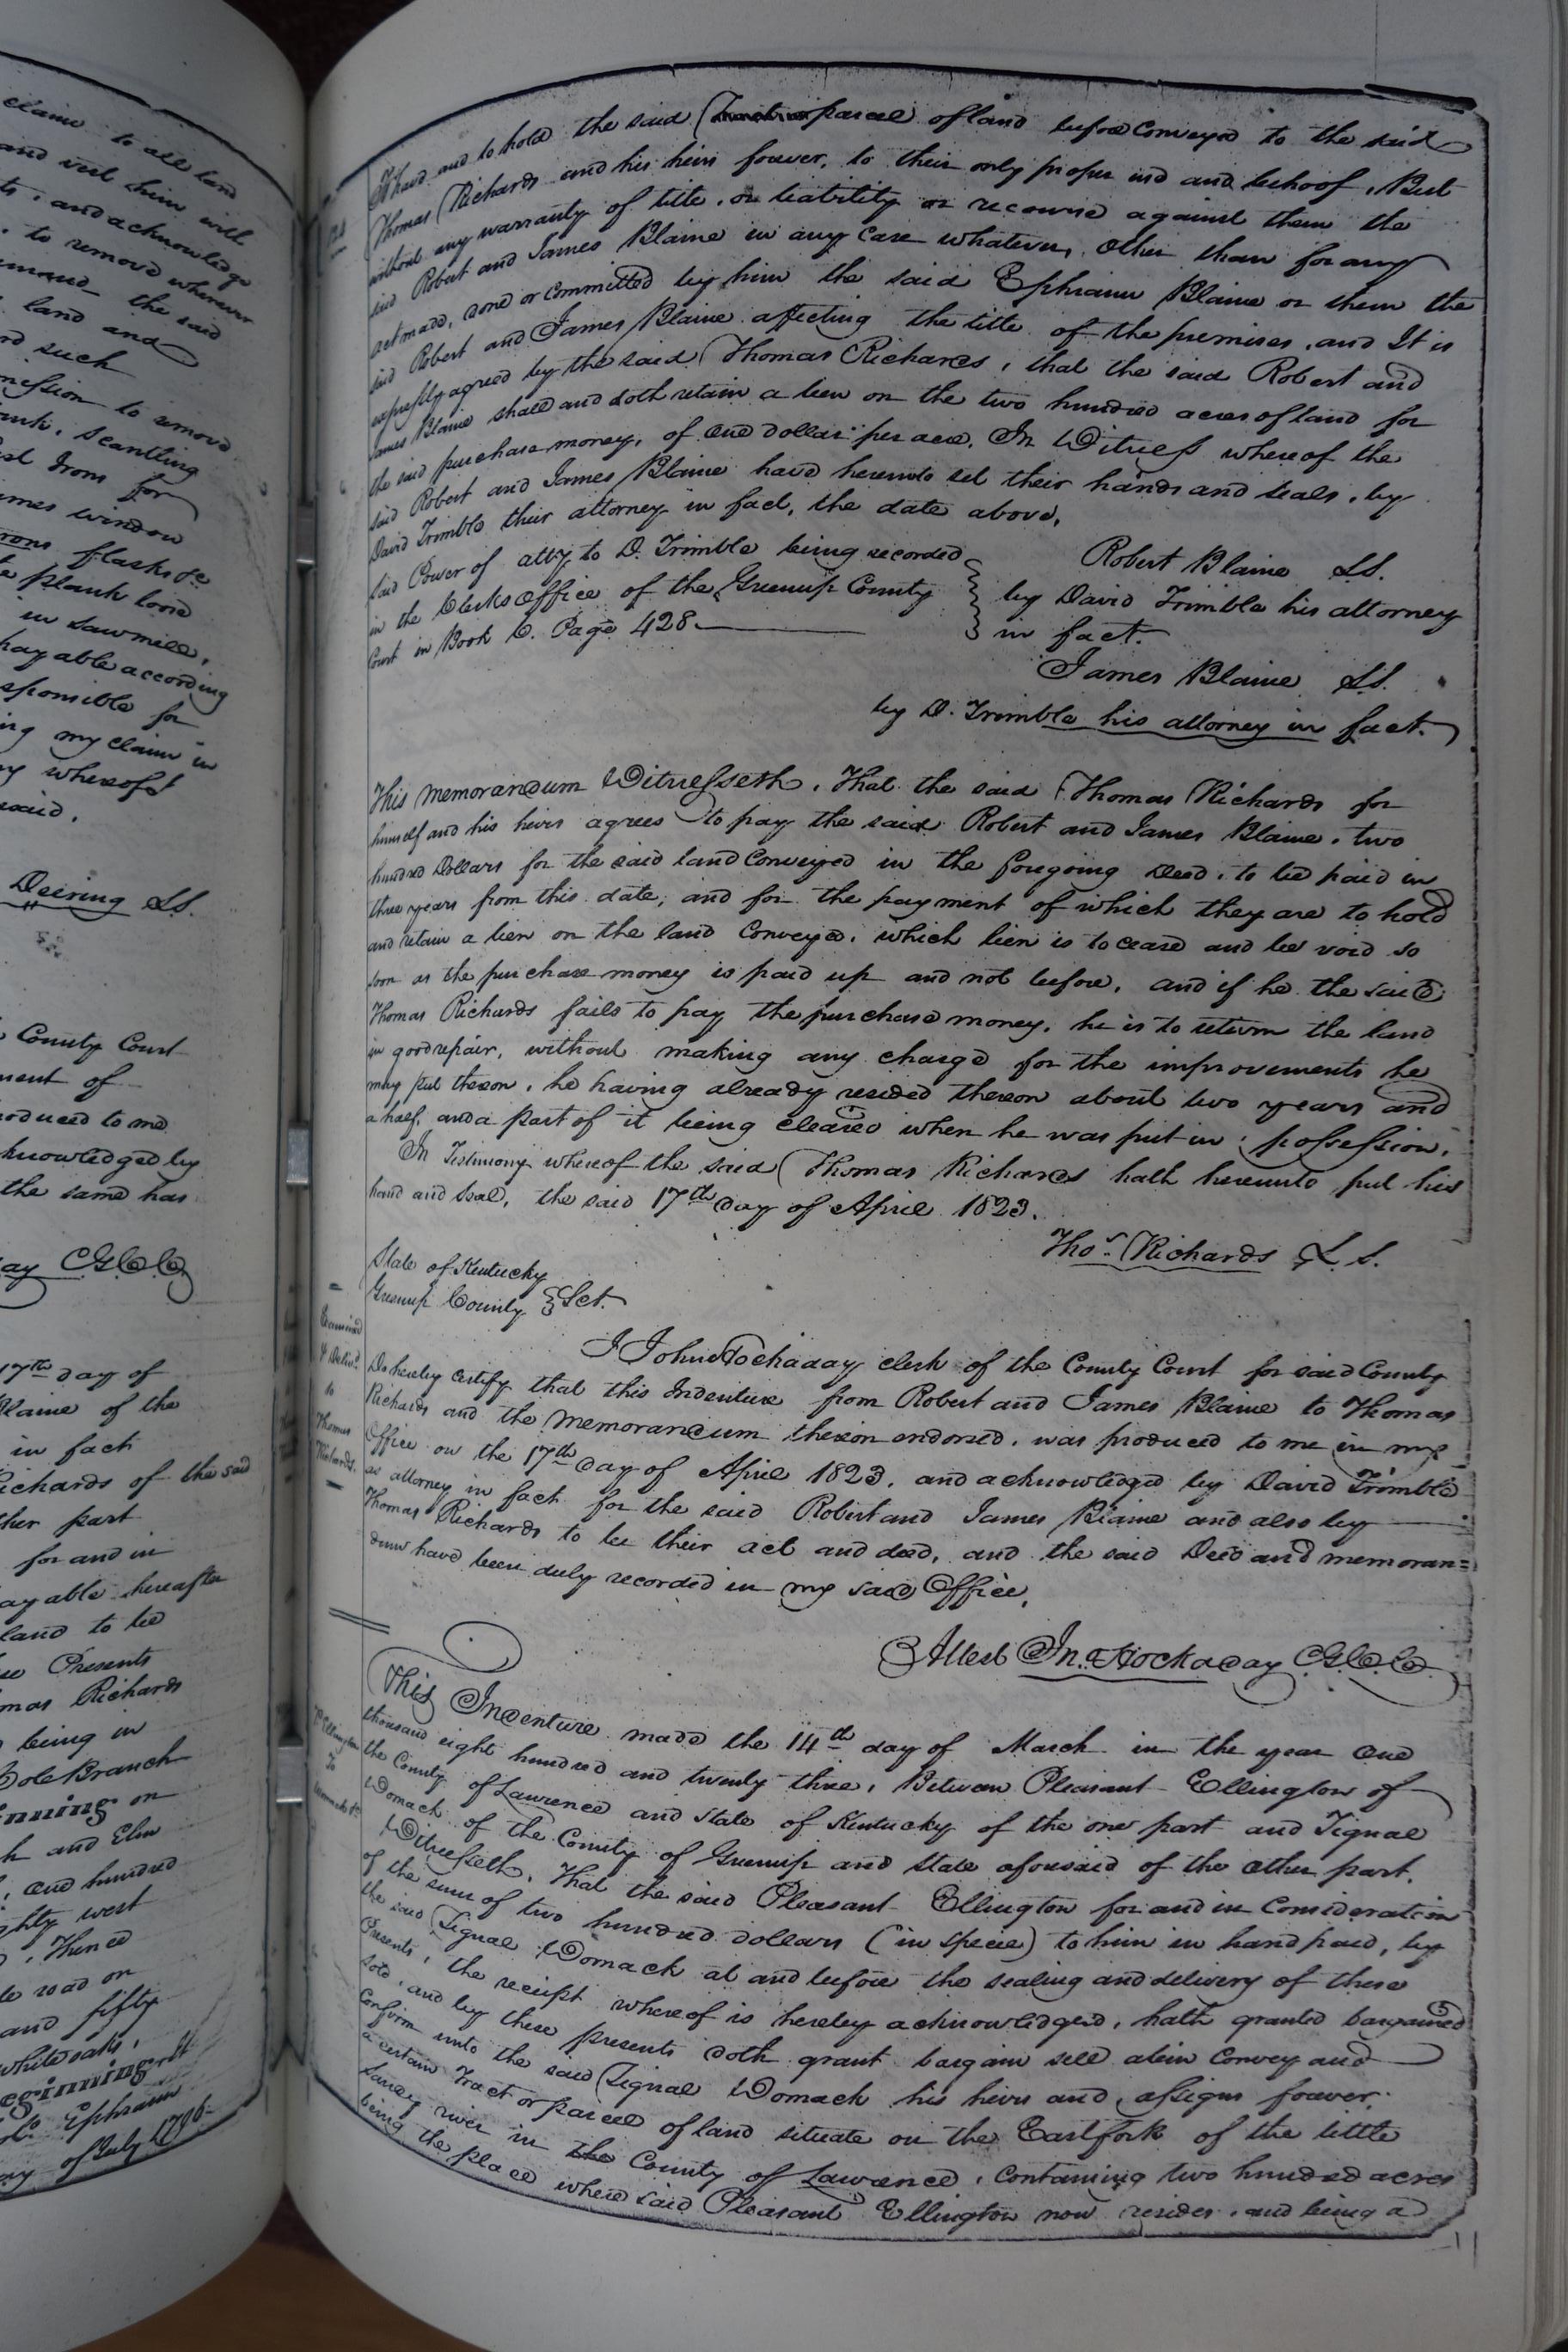 claim to all land
and vest him will
ts, and acknowledge
to remove wherever
the said
land and
rd such
mission to remove
scantling
Irons for
imes window
rons flasks &c
te plank loose
in sawmill,
payable according
sponsible for
ing my claim in
ny whereof I
said.
Deering LS.
County Court
ment of
roduced to me
knowledged by
the same has
ay C.G.C.C.
17th day of
Blaine of the
in fact
Richards of the said
ther part
for and in
ayable hereafter
land to be
Presents
mas Richards
being in
Branch
inning on
h and Elm
, one hundred
ghty west
, Thence
le road on
and fifty
white oaks,
eginning It
Ephraim
ay of July 1786.
To have and to hold the said Tract or parcel of land before conveyed to the said
Thomas Richards and his heirs forever, to their only proper use and behoof, But
without any warranty of title, or liability or recourse against them the
said Robert and James Blaine in any case whatever, other than for any
act made, done or committed by him the said Ephraim Blaine or them the
said Robert and James Blaine affecting the title of the premises, and It is
expressly agreed by the said Thomas Richards, that the said Robert and
James Blaine shall and doth retain a lien on the two hundred acres of land for
the said purchase money, of one dollar per acre. In Witness whereof the
said Robert and James Blaine have hereunto set their hands and seals, by
David Trimble their attorney in fact, the date above.
said Power of atty to D. Trimble being recorded
in the Clerks office of the Greenup County
Court in Book C. Page 428
Robert Blaine LS.
by David Trimble his attorney
in fact.
James Blaine LS.
by D. Trimble his attorney in fact.
This memorandum Witnesseth, That the said Thomas Richards for
himself and his heirs agrees to pay the said Robert and James Blaine, two
hundred Dollars for the said land Conveyed in the foregoing Deed, to be paid in
three years from this date, and for the payment of which they are to hold
and retain a lien on the land Conveyed, which lien is to cease and be void so
soon as the purchase money is paid up and not before, and if he the said
Thomas Richards fails to pay the purchase money, he is to return the land
in good repair, without making any charge for the improvements he
may put thereon, he having already resided thereon about two years and
a half, and a part of it being cleared when he was put in possession.
In Testimony whereof the said Thomas Richards hath hereunto put his
hand and seal, the said 17th day of April 1823.
Thos Richards L.S.
State of Kentucky
Greenup County } Sct.
Examined
& Delivd
to
Thomas
Richards.
I John Hockaday clerk of the County Court for said County
Do hereby certify that this Indenture from Robert and James Blaine to Thomas
Richards and the memorandum thereon endorsed, was produced to me in my
Office on the 17th day of April 1823, and acknowledged by David Trimble
as attorney in fact for the said Robert and James Blaine and also by
Thomas Richards to be their act and deed, and the said Deed and memoran=
dum have been duly recorded in my said Office.
Attest Jn. Hockaday C.G.C.C.
Ellington
To
Womack
This Indenture made the 14th day of March in the year one
thousand eight hundred and twenty three, Between Pleasant Ellington of
the County of Lawrence and State of Kentucky of the one part and Tignal
Womack of the County of Greenup and State aforesaid of the other part.
Witnesseth, That the said Pleasant Ellington for and in Consideration
of the sum of two hundred dollars (in specie) to him in hand paid, by
the said Tignal Womack at and before the sealing and delivery of these
Presents, the receipt whereof is hereby acknowledged, hath granted bargained
sold, and by these presents doth grant bargain sell alein Convey and
Confirm unto the said Tignal Womack his heirs and assigns forever,
a certain Tract or parcel of land situate on the East fork of the little
Sandy river in the County of Lawrence, containing two hundred acres
being the place where said Pleasant Ellington now resides, and being a